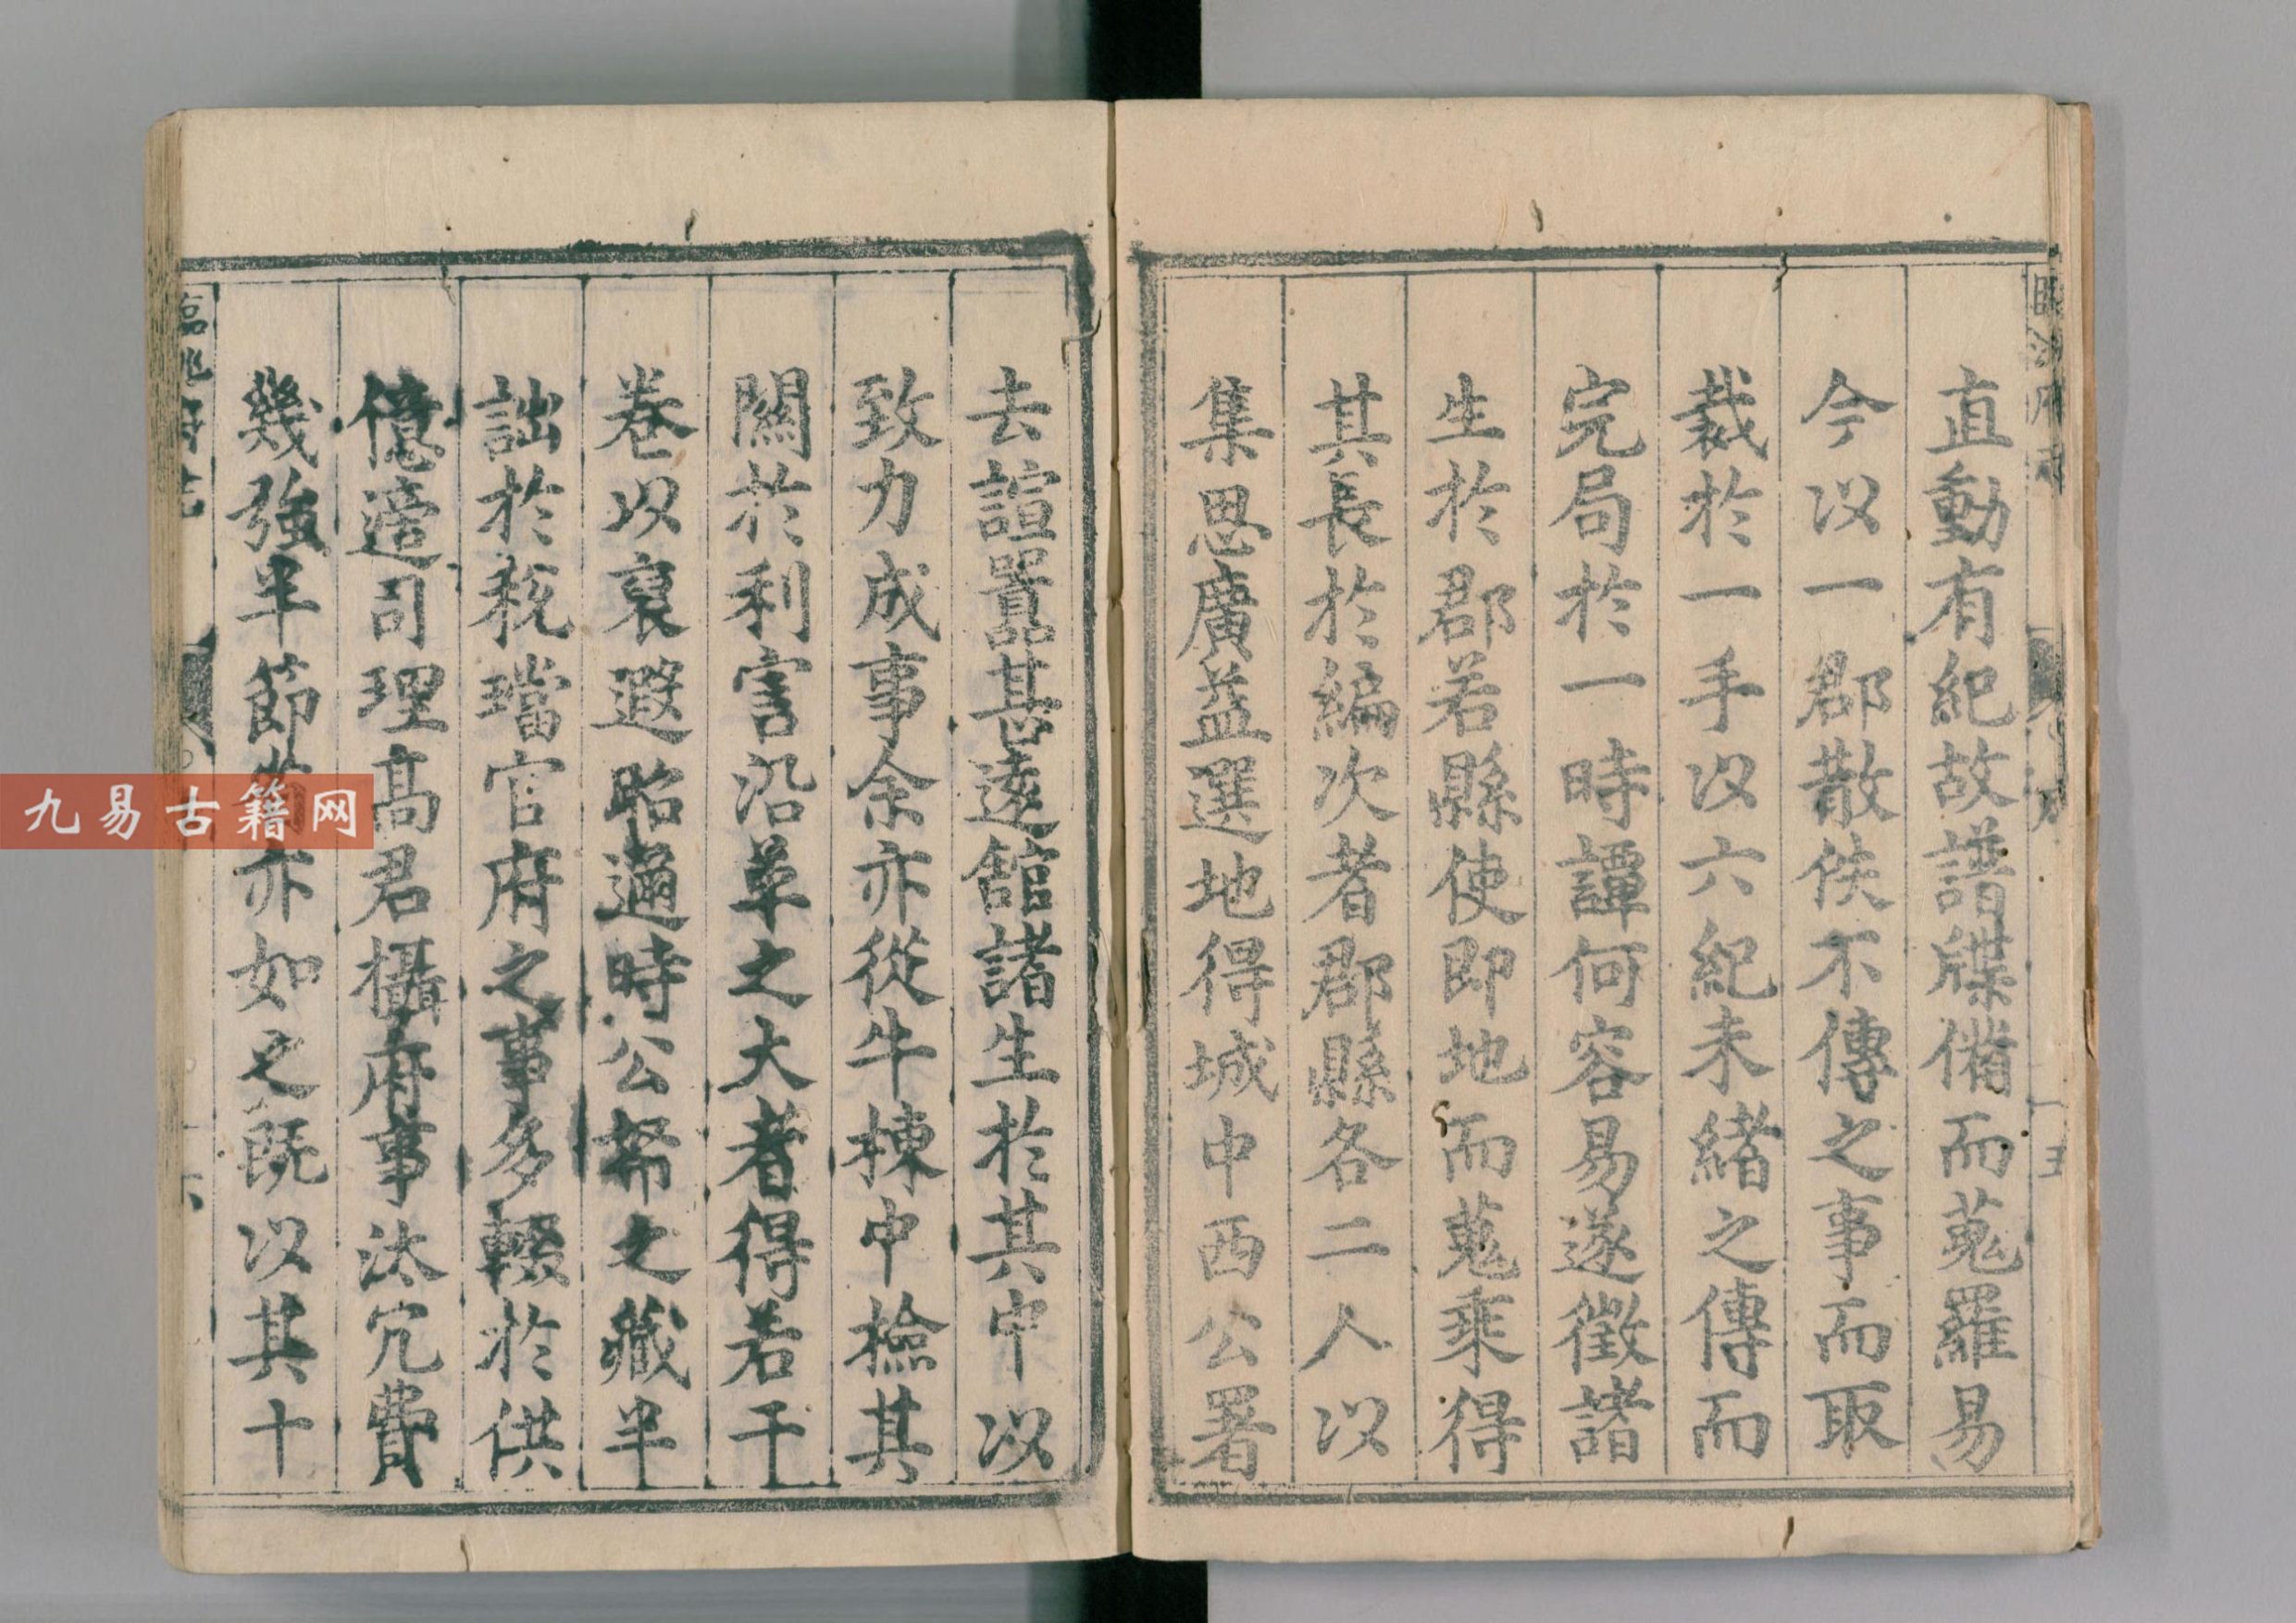 直動有紀故譜牒備而蒐羅易
今以一郡散佚不傳之事而取
裁於一手以六紀未緒之傳而
完局於一時譚何容易遂徵諸
生於郡若縣使即地而蒐乘得
其長於編次者郡縣各二人以
集思廣益選地得城中西公署
去諠囂甚遠舘諸生於其中以
致力成事余亦從牛棟中撿其
關於利害沿革之大者得若干
卷以裒遐昭邇時公帑之藏半
詘於稅璫官府之事多輟於供
億適司理高君攝府事汰冗費
幾強半節省亦如之既以其十
九易古籍网